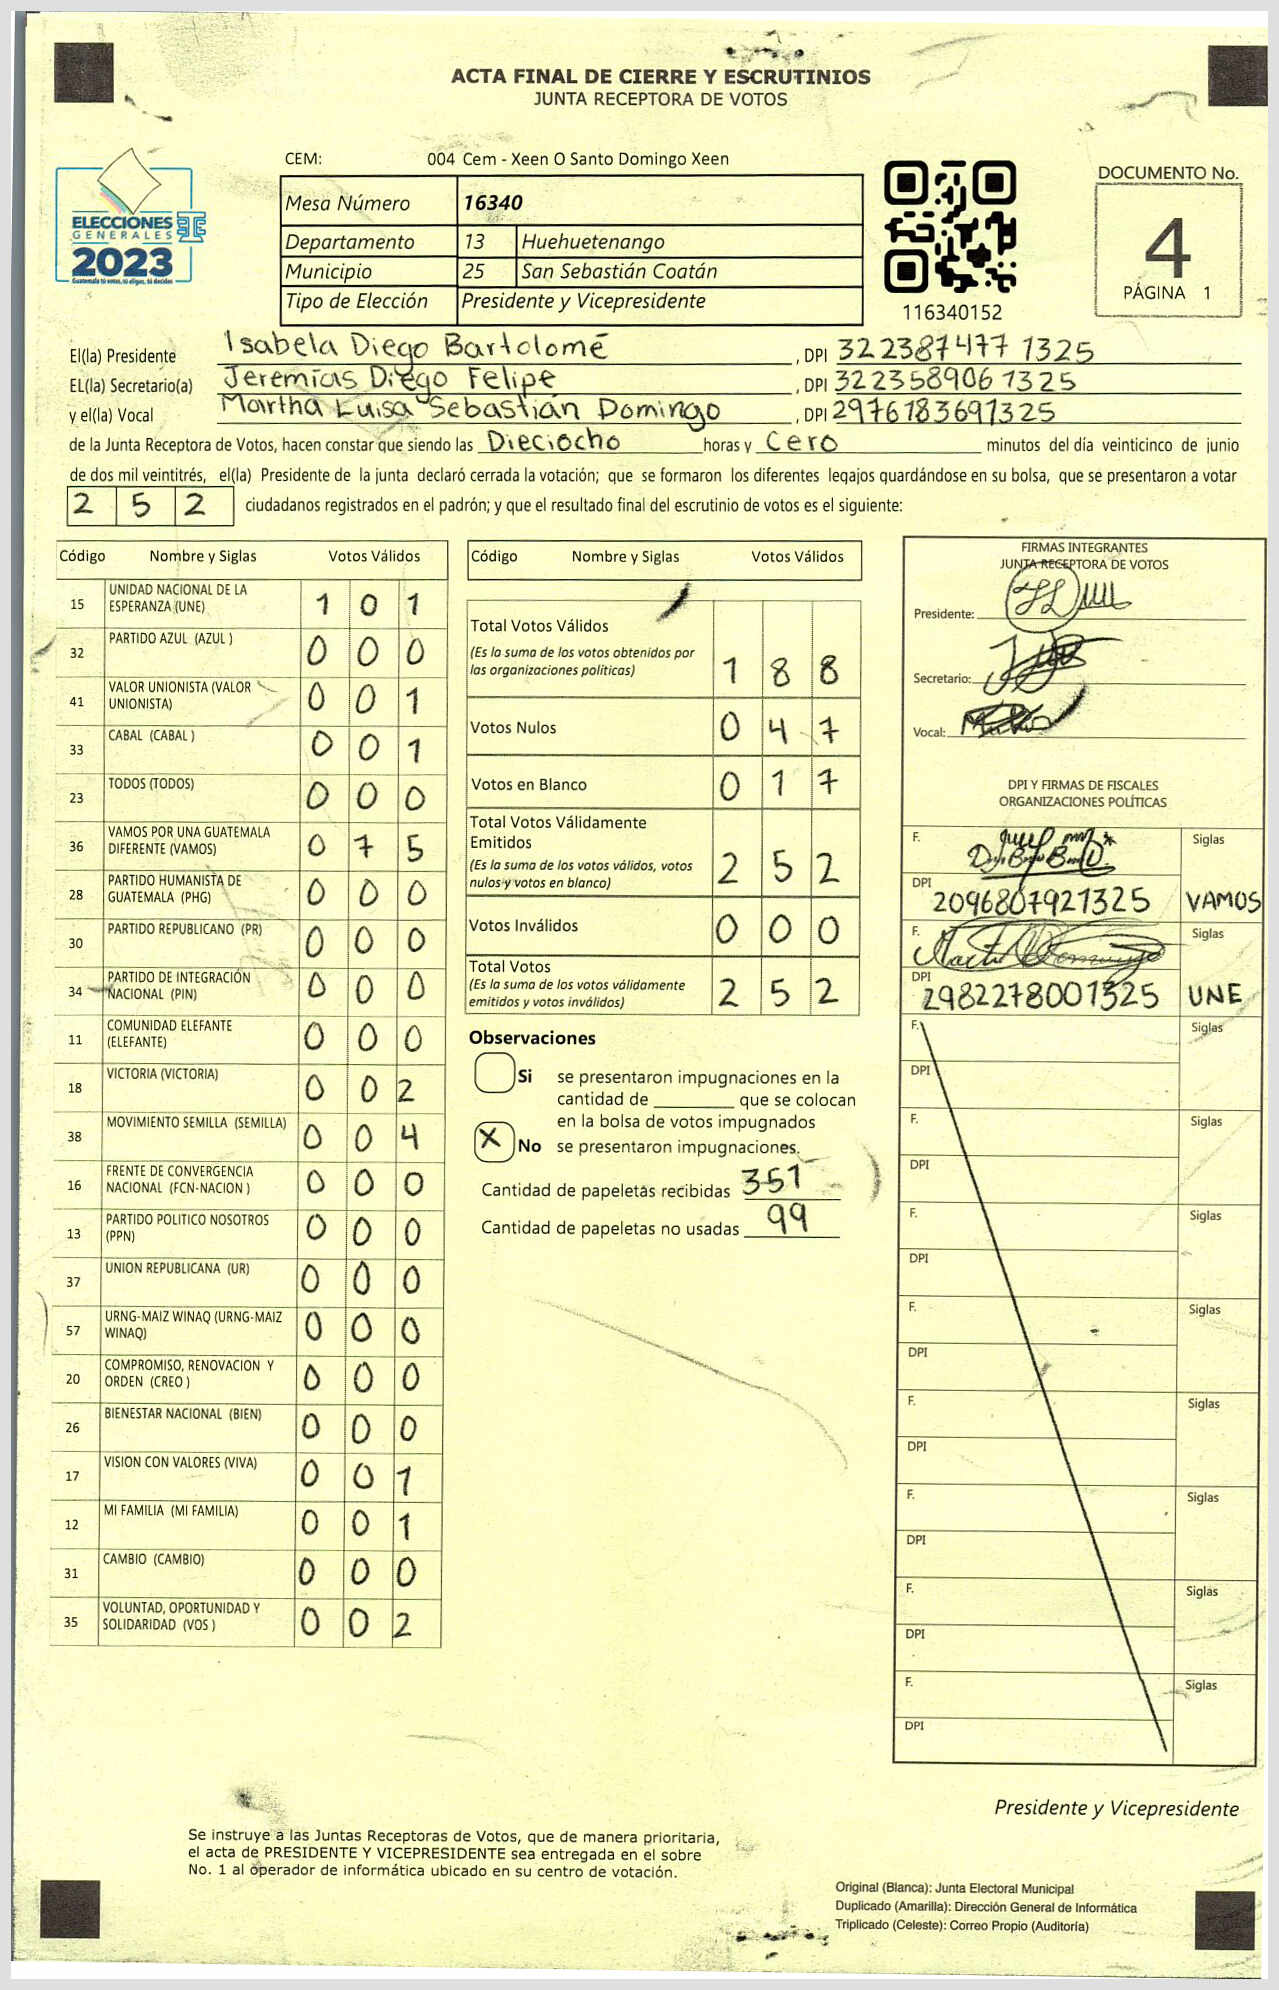 ACTA FINAL DE CIERRE Y ESCRUTINIOS
JUNTA RECEPTORA DE VOTOS
CEM: 004 Cem - Xeen O Santo Domingo Xeen
ELECCIONES
GENERALES
2023
Guatemala tú votas, tú eliges, tú decides
Mesa Número 16340
Departamento 13 Huehuetenango
Municipio 25 San Sebastián Coatán
Tipo de Elección Presidente y Vicepresidente
116340152
DOCUMENTO No.
4
PÁGINA 1
El(la) Presidente Isabela Diego Bartolomé , DPI 322387477 1325
EL(la) Secretario(a) Jeremías Diego Felipe , DPI 3223589061325
y el(la) Vocal Martha Luisa Sebastián Domingo , DPI 2976183691325
de la Junta Receptora de Votos, hacen constar que siendo las Dieciocho horas y Cero minutos del día veinticinco de junio
de dos mil veintitrés, el(la) Presidente de la junta declaró cerrada la votación; que se formaron los diferentes legajos quardándose en su bolsa, que se presentaron a votar
2 5 2 ciudadanos registrados en el padrón; y que el resultado final del escrutinio de votos es el siguiente:
Código Nombre y Siglas Votos Válidos
15 UNIDAD NACIONAL DE LA
ESPERANZA (UNE) 1 0 1
32 PARTIDO AZUL (AZUL ) 0 0 0
41 VALOR UNIONISTA (VALOR
UNIONISTA) 0 0 1
33 CABAL (CABAL ) 0 0 1
23 TODOS (TODOS) 0 0 0
36 VAMOS POR UNA GUATEMALA
DIFERENTE (VAMOS) 0 7 5
28 PARTIDO HUMANISTA DE
GUATEMALA (PHG) 0 0 0
30 PARTIDO REPUBLICANO (PR) 0 0 0
34 PARTIDO DE INTEGRACIÓN
NACIONAL (PIN) 0 0 0
11 COMUNIDAD ELEFANTE
(ELEFANTE) 0 0 0
18 VICTORIA (VICTORIA) 0 0 2
38 MOVIMIENTO SEMILLA (SEMILLA) 0 0 4
16 FRENTE DE CONVERGENCIA
NACIONAL (FCN-NACION ) 0 0 0
13 PARTIDO POLITICO NOSOTROS
(PPN) 0 0 0
37 UNION REPUBLICANA (UR) 0 0 0
57 URNG-MAIZ WINAQ (URNG-MAIZ
WINAQ) 0 0 0
20 COMPROMISO, RENOVACION Y
ORDEN (CREO ) 0 0 0
26 BIENESTAR NACIONAL (BIEN) 0 0 0
17 VISION CON VALORES (VIVA) 0 0 1
12 MI FAMILIA (MI FAMILIA) 0 0 1
31 CAMBIO (CAMBIO) 0 0 0
35 VOLUNTAD, OPORTUNIDAD Y
SOLIDARIDAD (VOS ) 0 0 2
Código Nombre y Siglas Votos Válidos
Total Votos Válidos
(Es la suma de los votos obtenidos por
las organizaciones políticas) 1 8 8
Votos Nulos 0 4 7
Votos en Blanco 0 1 7
Total Votos Válidamente
Emitidos
(Es la suma de los votos válidos, votos
nulos y votos en blanco) 2 5 2
Votos Inválidos 0 0 0
Total Votos
(Es la suma de los votos válidamente
emitidos y votos inválidos) 2 5 2
Observaciones
Si se presentaron impugnaciones en la
cantidad de ________ que se colocan
en la bolsa de votos impugnados
X No se presentaron impugnaciones.
Cantidad de papeletas recibidas 351
Cantidad de papeletas no usadas 99
FIRMAS INTEGRANTES
JUNTA RECEPTORA DE VOTOS
Presidente:
Secretario:
Vocal:
DPI Y FIRMAS DE FISCALES
ORGANIZACIONES POLÍTICAS
F. Siglas
DPI 2096807921325 VAMOS
F. Siglas
DPI 2982278001325 UNE
F. Siglas
DPI
F. Siglas
DPI
F. Siglas
DPI
F. Siglas
DPI
F. Siglas
DPI
F. Siglas
DPI
F. Siglas
DPI
F. Siglas
DPI
Presidente y Vicepresidente
Se instruye a las Juntas Receptoras de Votos, que de manera prioritaria,
el acta de PRESIDENTE Y VICEPRESIDENTE sea entregada en el sobre
No. 1 al operador de informática ubicado en su centro de votación.
Original (Blanca): Junta Electoral Municipal
Duplicado (Amarilla): Dirección General de Informática
Triplicado (Celeste): Correo Propio (Auditoría)